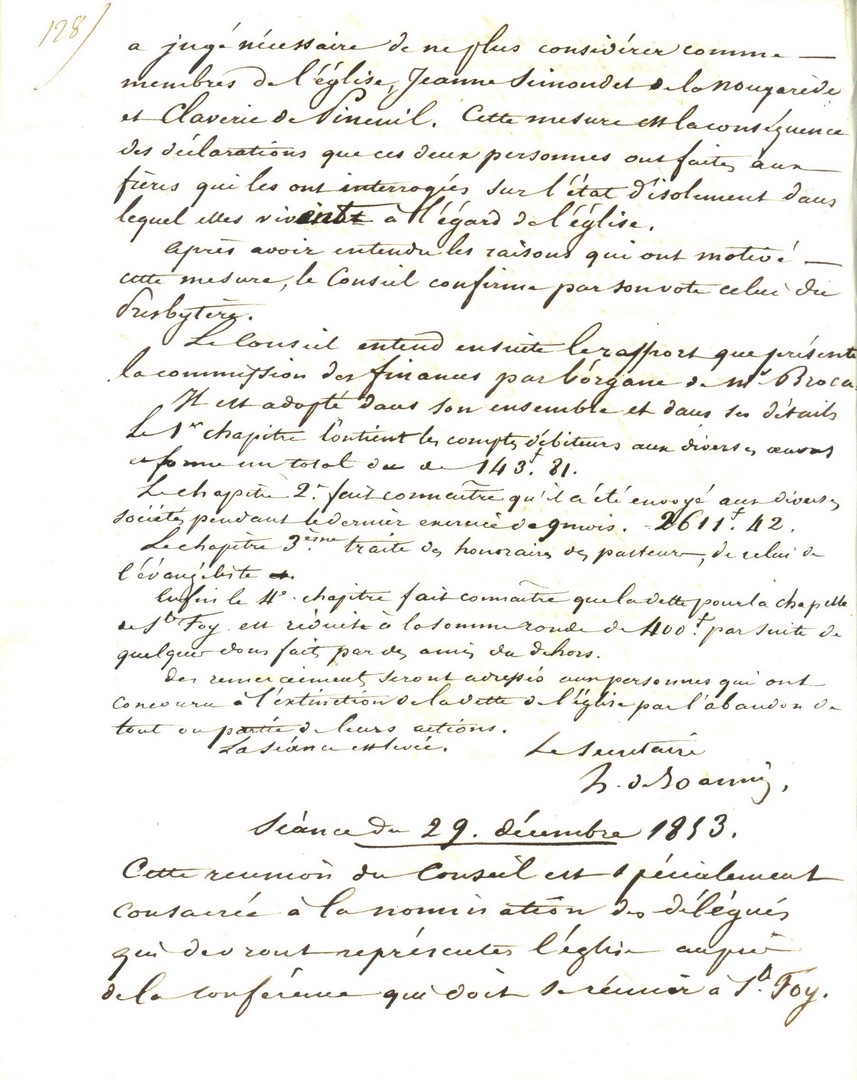 128
a jugé nécessaire de ne plus considérer comme —
membres de l'église, Jeanne Simondet de la nougarède
et Claverie de Pineuil. Cette mesure est la conséquence
des déclarations que ces deux personnes ont faites aux
frères qui les ont interrogées sur l'état d'isolement dans
lequel elles vivent à l'égard de l'église.
Après avoir entendu les raisons qui ont motivé —
cette mesure, le Conseil confirme par son vote celui du
Presbytère.
Le Conseil entend ensuite le rapport que présente
la commission des finances par l'organe de mr Broca.
Il est adopté dans son ensemble et dans ses détails
Le 1er chapitre contient les comptes débiteurs aux diverses œuvres
et forme un total de 143f. 81.
Le chapitre 2e. fait connaître qu'il a été envoyé aux diverses
sociétés pendant le dernier exercice de 9 mois. 2611f. 42.
Le chapitre 3ème. traite des honoraires des pasteurs, de celui de
l'évangéliste
Enfin le 4e. chapitre fait connaître que la dette pour la chapelle
de Ste Foy est réduite à la somme ronde de 400f. par suite de
quelques dons fait par des amis du dehors.
Des remerciements seront adressés aux personnes qui ont
concouru à l'extinction de la dette de l'église par l'abandon de
tout ou partie de leurs actions.
La séance est levée. Le Secretaire
de
Séance du 29. décembre 1853.
Cette reunion du Conseil est spécialement
consacrée à la nomination des délégués
qui devront représenter l'église auprès
de la conférence qui doit se réunir à Ste. Foy.